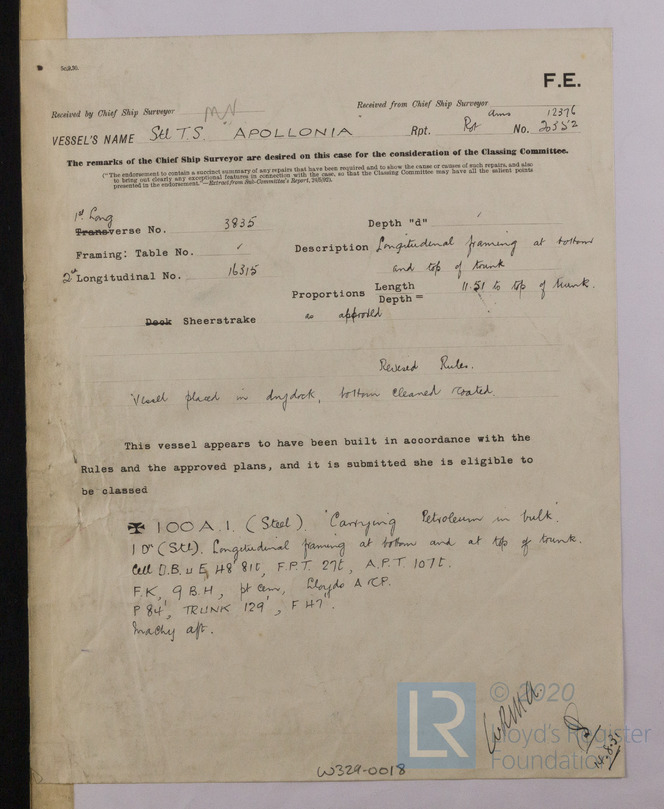 F.E.
Received by Chief Ship Surveyor
Received from Chief Ship Surveyor
dms 12376
VESSEL'S NAME Stl T.S. "APOLLONIA Rpt. Rot No. 20552
The remarks of the Chief Ship Surveyor are desired on this case for the consideration of the Classing Committee.
("The endorsement to contain a succinct summary of any repairs that have been required and to show the cause or causes of such repairs, and also
to bring out clearly any exceptional features in connection with the case, so that the Classing Committee may have all the salient points
presented in the endorsement."—Extract from Sub-Committee's Report,
1st Long
Transverse No. 3835 Depth "d"
Framing: Table No. Description Longitudinal framing at bottom
and top of trunk
2nd Longitudinal No. 16315
Proportions Length Depth = 11.51 to top of trunk.
Deck Sheerstrake as approved
Revised Rules.
Vessel placed in drydock, bottom cleaned & coated.
This vessel appears to have been built in accordance with the
Rules and the approved plans, and it is submitted she is eligible to
be classed
✠ 100 A.1. (Steel). 'Carrying Petroleum in bulk'.
1 Dk (Stl). Longitudinal framing at bottom and at top of trunk.
Cell D.B. u E, 48' 81t, F.P.T. 27t, A.P.T. 107t.
F.K, 9 B.H, pt cem, Lloyds A & CP.
P 84', TRUNK 129', F 47'.
Machy aft.
14.8.31
W329-0018
LR
© 2020
Lloyd's Register
Foundation